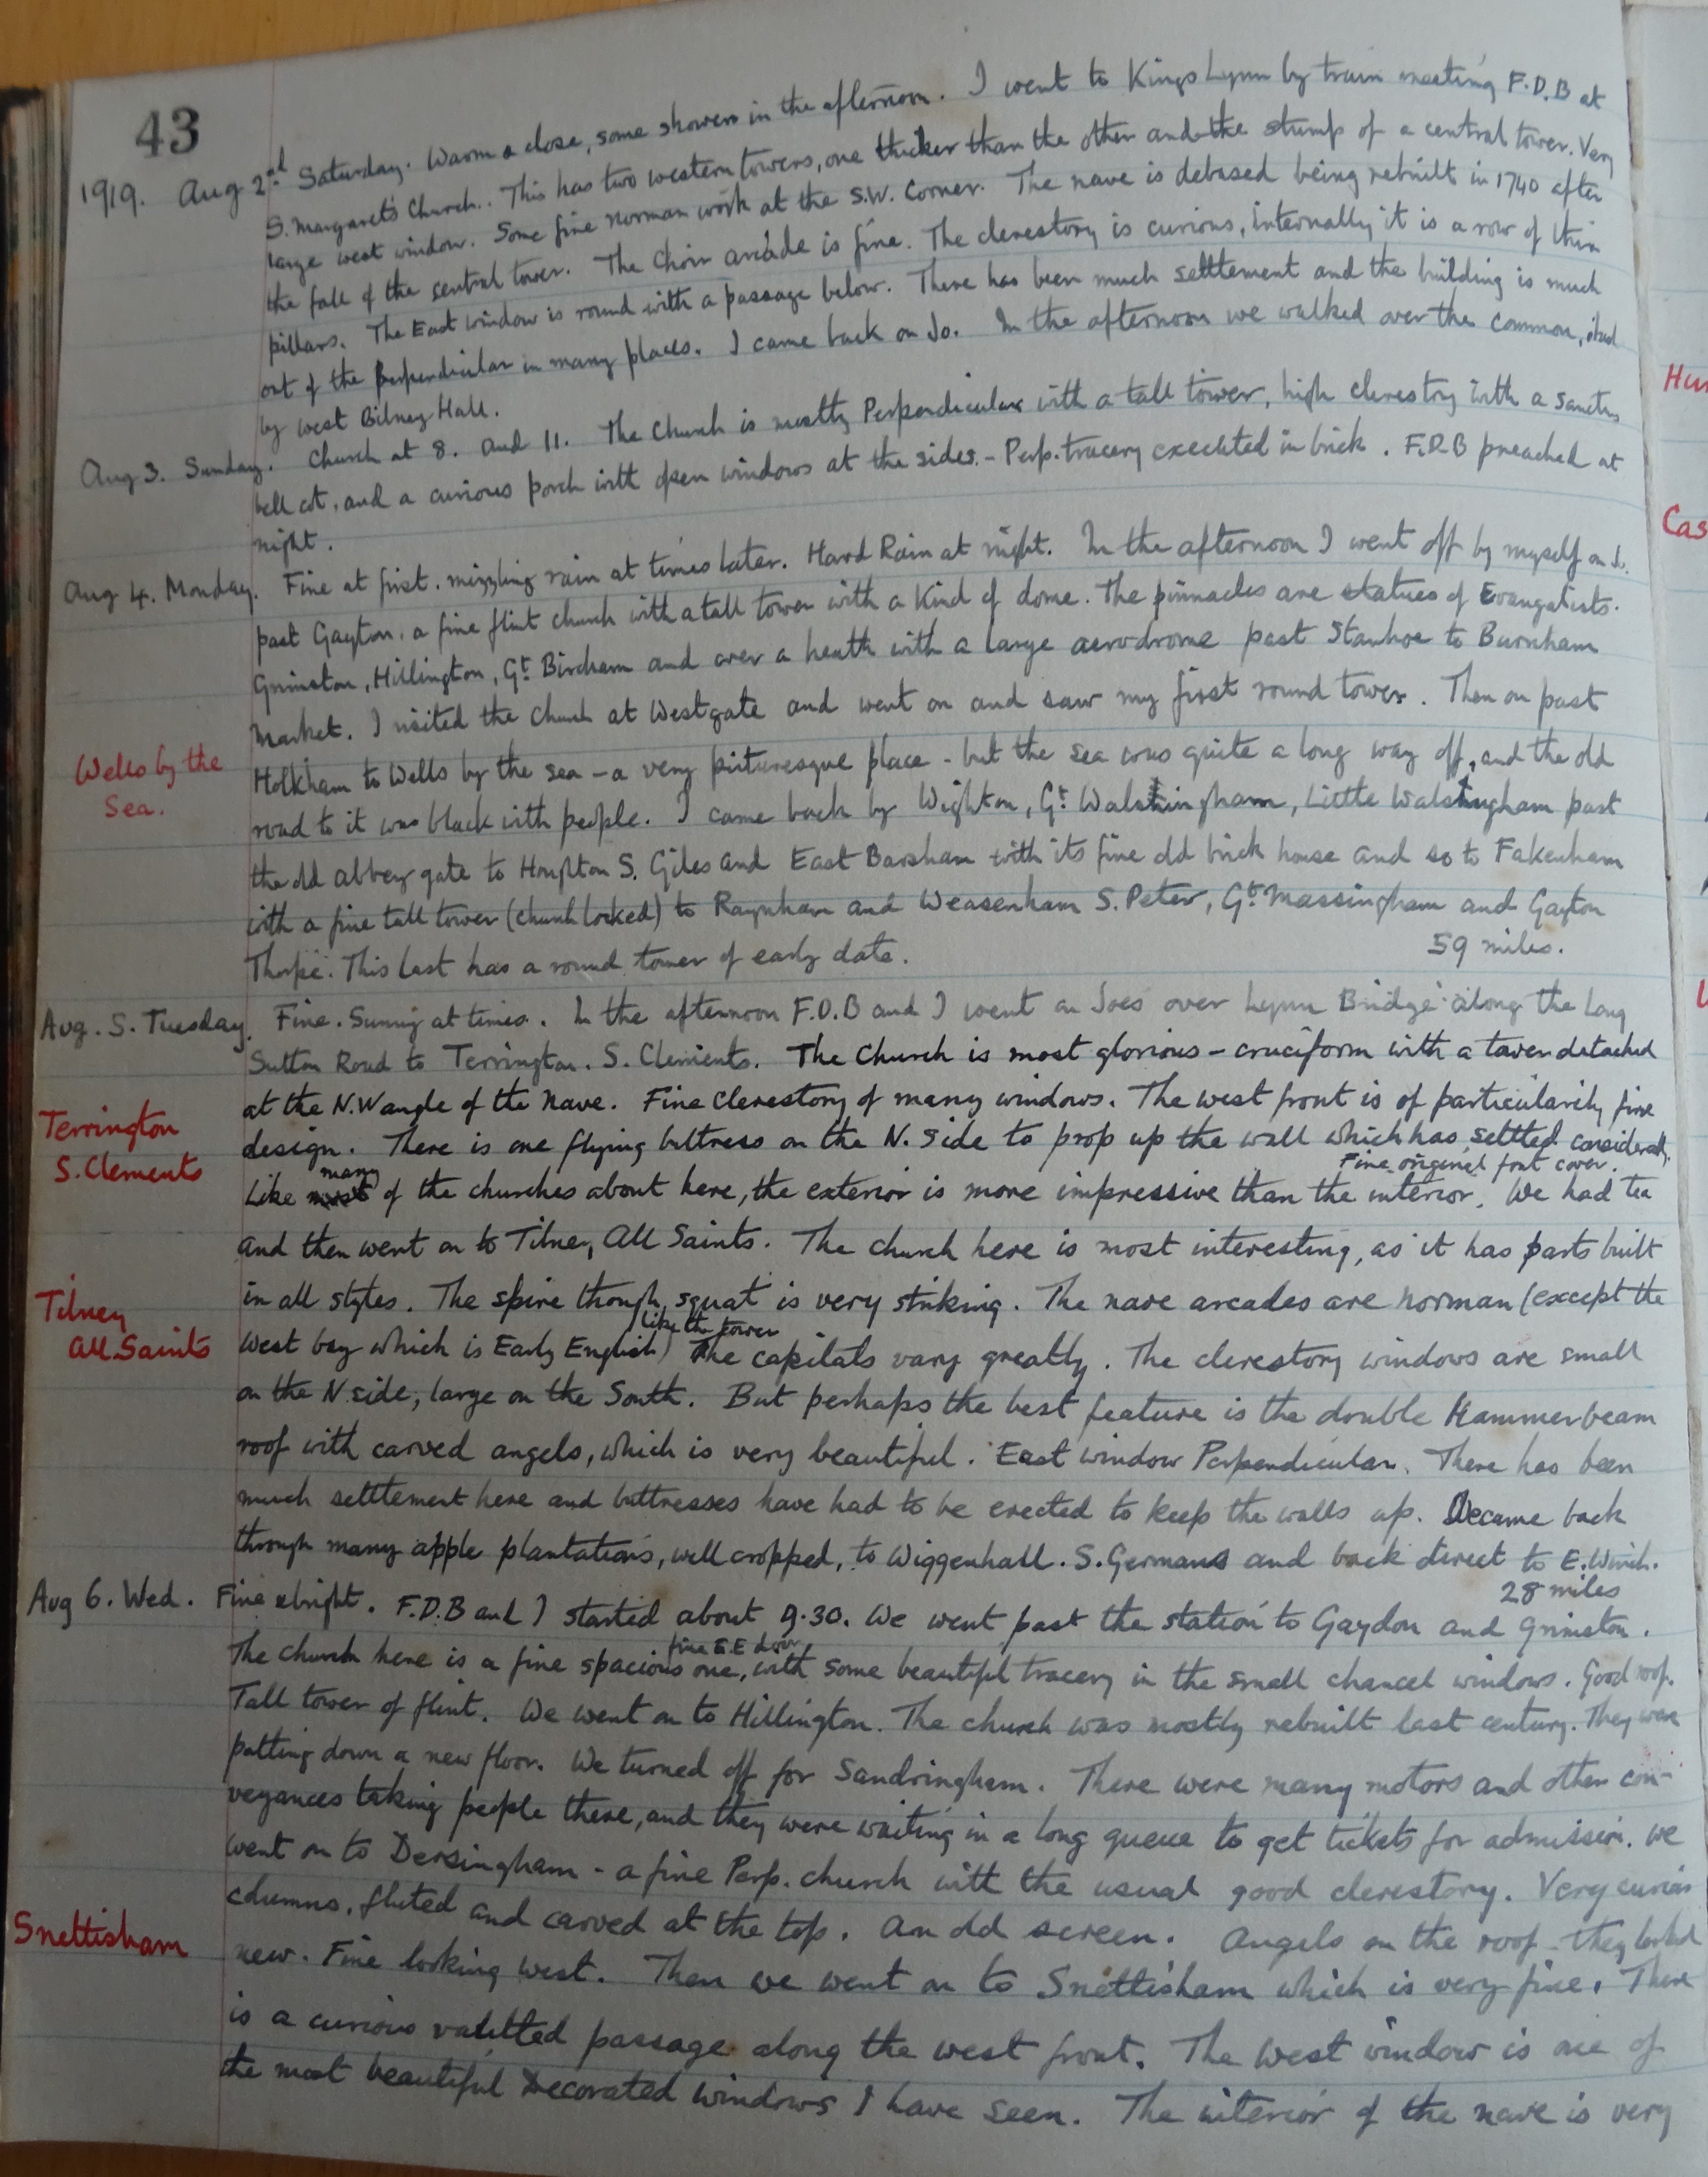 43
1919. Aug 2nd Saturday. Warm & close, some showers in the afternoon. I went to Kings Lynn by train meeting F.D.B at
S. Margaret's Church. This has two western towers, one thicker than the other and the stump of a central tower. Very
large west window. Some fine norman work at the S.W. Corner. The nave is debased being rebuilt in 1740 after
the fall of the central tower. The Choir arcade is fine. The clerestory is curious, internally it is a row of thin
pillars. The East window is round with a passage below. There has been much settlement and the building is much
out of the perpendicular in many places. I came back on Jo. In the afternoon we walked over the common, &
by west Bilney Hall.
Aug 3. Sunday. Church at 8. and 11. The Church is mostly Perpendicular with a tall tower, high clerestory with a sanctus
bell cot, and a curious porch with open windows at the sides - Perp. tracery executed in brick. F.D.B preached at
night.
Aug 4. Monday. Fine at first. mizzling rain at times later. Hard Rain at night. In the afternoon I went off by myself on Jo.
past Gayton, a fine flint church with a tall tower with a kind of dome. The pinnacles are statues of Evangelists.
Grimston, Hillington, Gt Bircham and over a heath with a large aerodrome past Stanhoe to Burnham
Market. I visited the Church at Westgate and went on and saw my first round tower. Then on past
Wells by the
Sea.
Holkham to Wells by the sea - a very picturesque place - but the sea was quite a long way off, and the old
road to it was black with people. I came back by Wighton, Gt Walsingham, Little Walsingham past
the old abbey gate to Houghton S. Giles and East Barsham with its fine old brick house and so to Fakenham
with a fine tall tower (church locked) to Raynham and Weasenham S. Peter, Gt Massingham and Gayton
Thorpe. This last has a round tower of early date. 59 miles.
Aug. 5. Tuesday. Fine. Sunny at times. In the afternoon F.D.B and I went on Joes over Lynn Bridge along the Long
Sutton Road to Terrington. S. Clements. The Church is most glorious - cruciform with a tower detached
Terrington
S. Clements
at the N.W angle of the nave. Fine clerestory of many windows. The west front is of particularly fine
design. There is one flying buttress on the N. side to prop up the wall which has settled considerably.
Like most many of the churches about here, the exterior is more impressive than the interior. Fine original font cover. We had tea
and then went on to Tilney All Saints. The church here is most interesting, as it has parts built
Tilney
All Saints
in all styles. The spire though squat is very striking. The nave arcades are norman (except the
west bay which is Early English) like the tower The capitals vary greatly. The clerestory windows are small
on the N side, large on the South. But perhaps the best feature is the double Hammerbeam
roof with carved angels, which is very beautiful. East window Perpendicular. There has been
much settlement here and buttresses have had to be erected to keep the walls up. We came back
through many apple plantations, well cropped, to Wiggenhall. S. Germans and back direct to E. Winch.
28 miles
Aug 6. Wed. Fine & bright. F.D.B and I started about 9.30. We went past the station to Gaydon and Grimston.
The church here is a fine spacious one, fine E.E door, with some beautiful tracery in the small chancel windows. Good roof.
Tall tower of flint. We went on to Hillington. The church was mostly rebuilt last century. They were
putting down a new floor. We turned off for Sandringham. There were many motors and other con-
veyances taking people there, and they were waiting in a long queue to get tickets for admission. We
went on to Dersingham - a fine Perp. church with the usual good clerestory. Very curious
columns, fluted and carved at the top. An old screen. Angels on the roof - they looked
Snettisham
new. Fine looking west. Then we went on to Snettisham which is very fine. There
is a curious vaulted passage along the west front. The West window is one of
the most beautiful Decorated windows I have seen. The interior of the nave is very
Cas